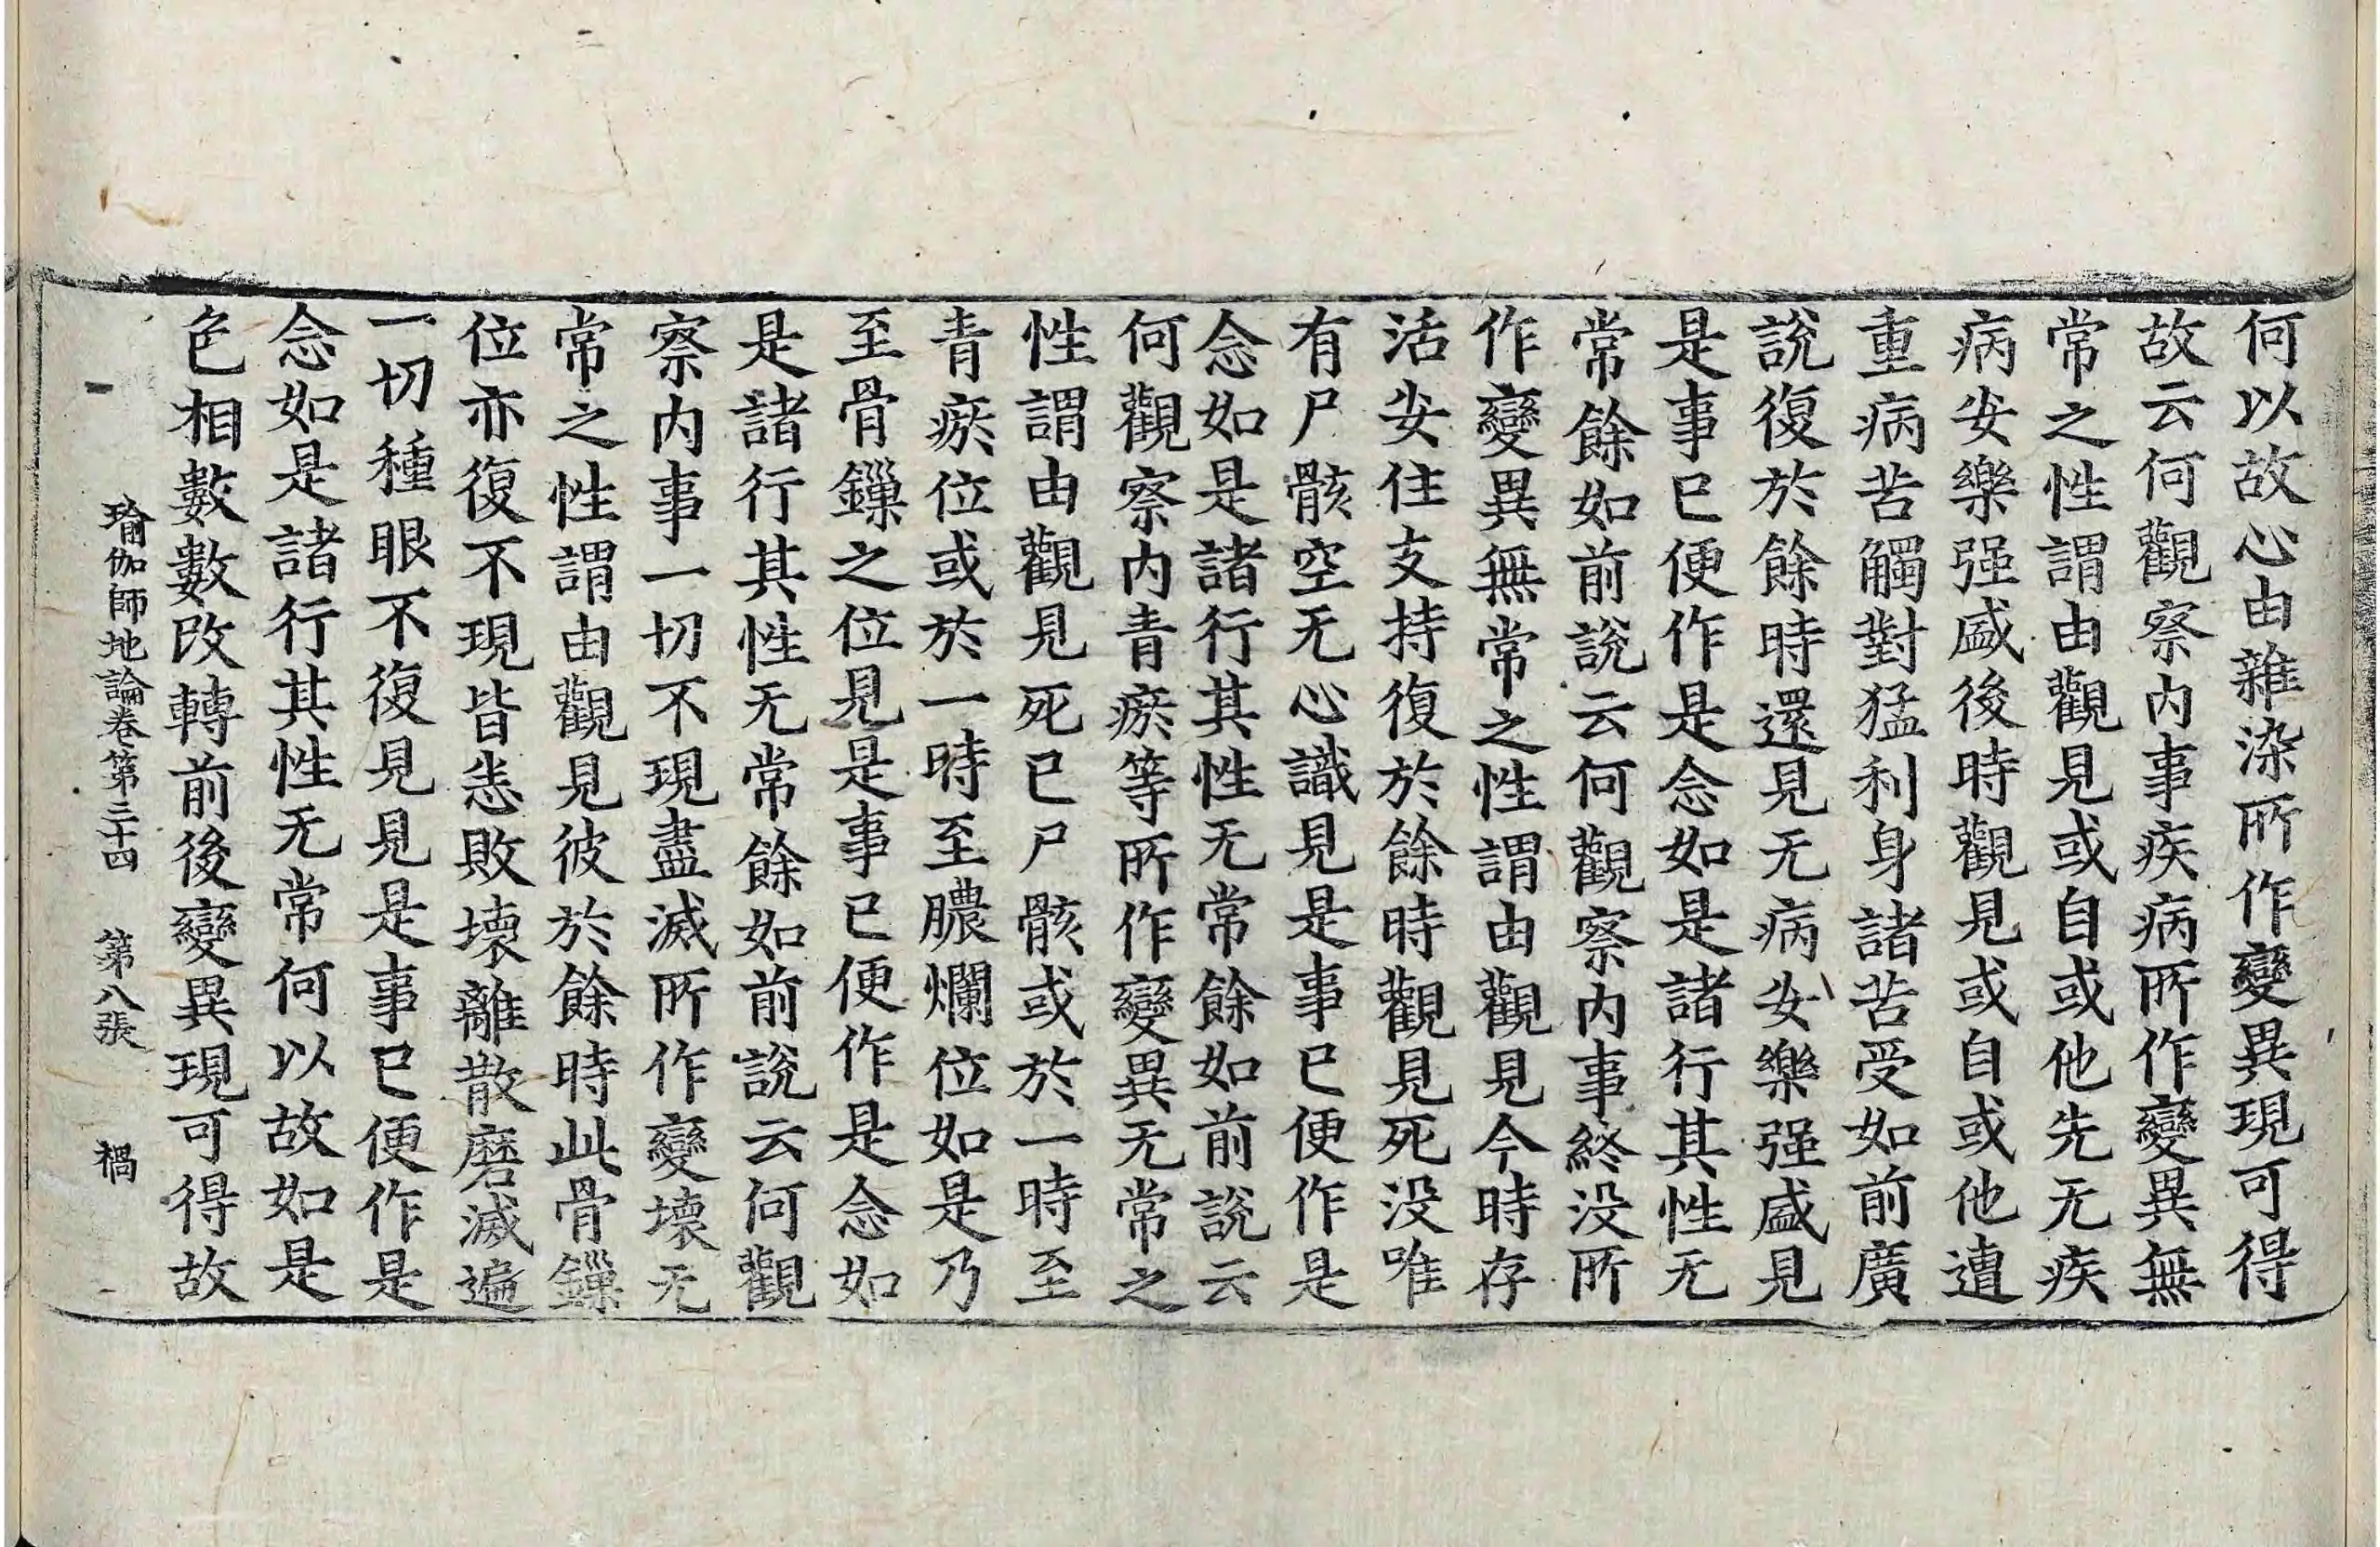 何以故心由雜染所作變異現可得
故云何觀察内事疾病所作變異無
常之性謂由觀見或自或他先无疾
病安樂强盛後時觀見或自或他遭
重病苦觸對猛利身諸苦受如前廣
說復於餘時還見无病安樂强盛見
是事已便作是念如是諸行其性无
常餘如前說云何觀察内事終没所
作變異無常之性謂由觀見今時存
活安住支持復於餘時觀見死没唯
有尸骸空无心識見是事已便作是
念如是諸行其性无常餘如前說云
何觀察内青瘀等所作變異无常之
性謂由觀見死已尸骸或於一時至
青瘀位或於一時至膿爛位如是乃
至骨鏁之位見是事已便作是念如
是諸行其性无常餘如前說云何觀
察内事一切不現盡滅所作變壞无
常之性謂由觀見彼於餘時此骨鏁
位亦復不現皆悉敗壞離散磨滅遍
一切種眼不復見見是事已便作是
念如是諸行其性无常何以故如是
色相數數改轉前後變異現可得故
瑜伽師地論卷第三十四　第八張　禍